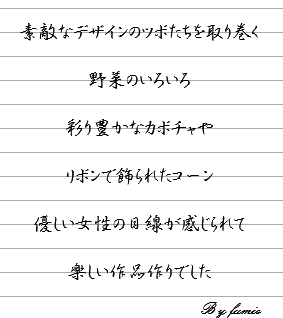 素敵なデザインのツボたちを取り巻く
野菜のいろいろ
彩り豊かなカボチャや
リボンで飾られたコーン
優しい女性の目線が感じられて
楽しい作品作りでした
By fumie